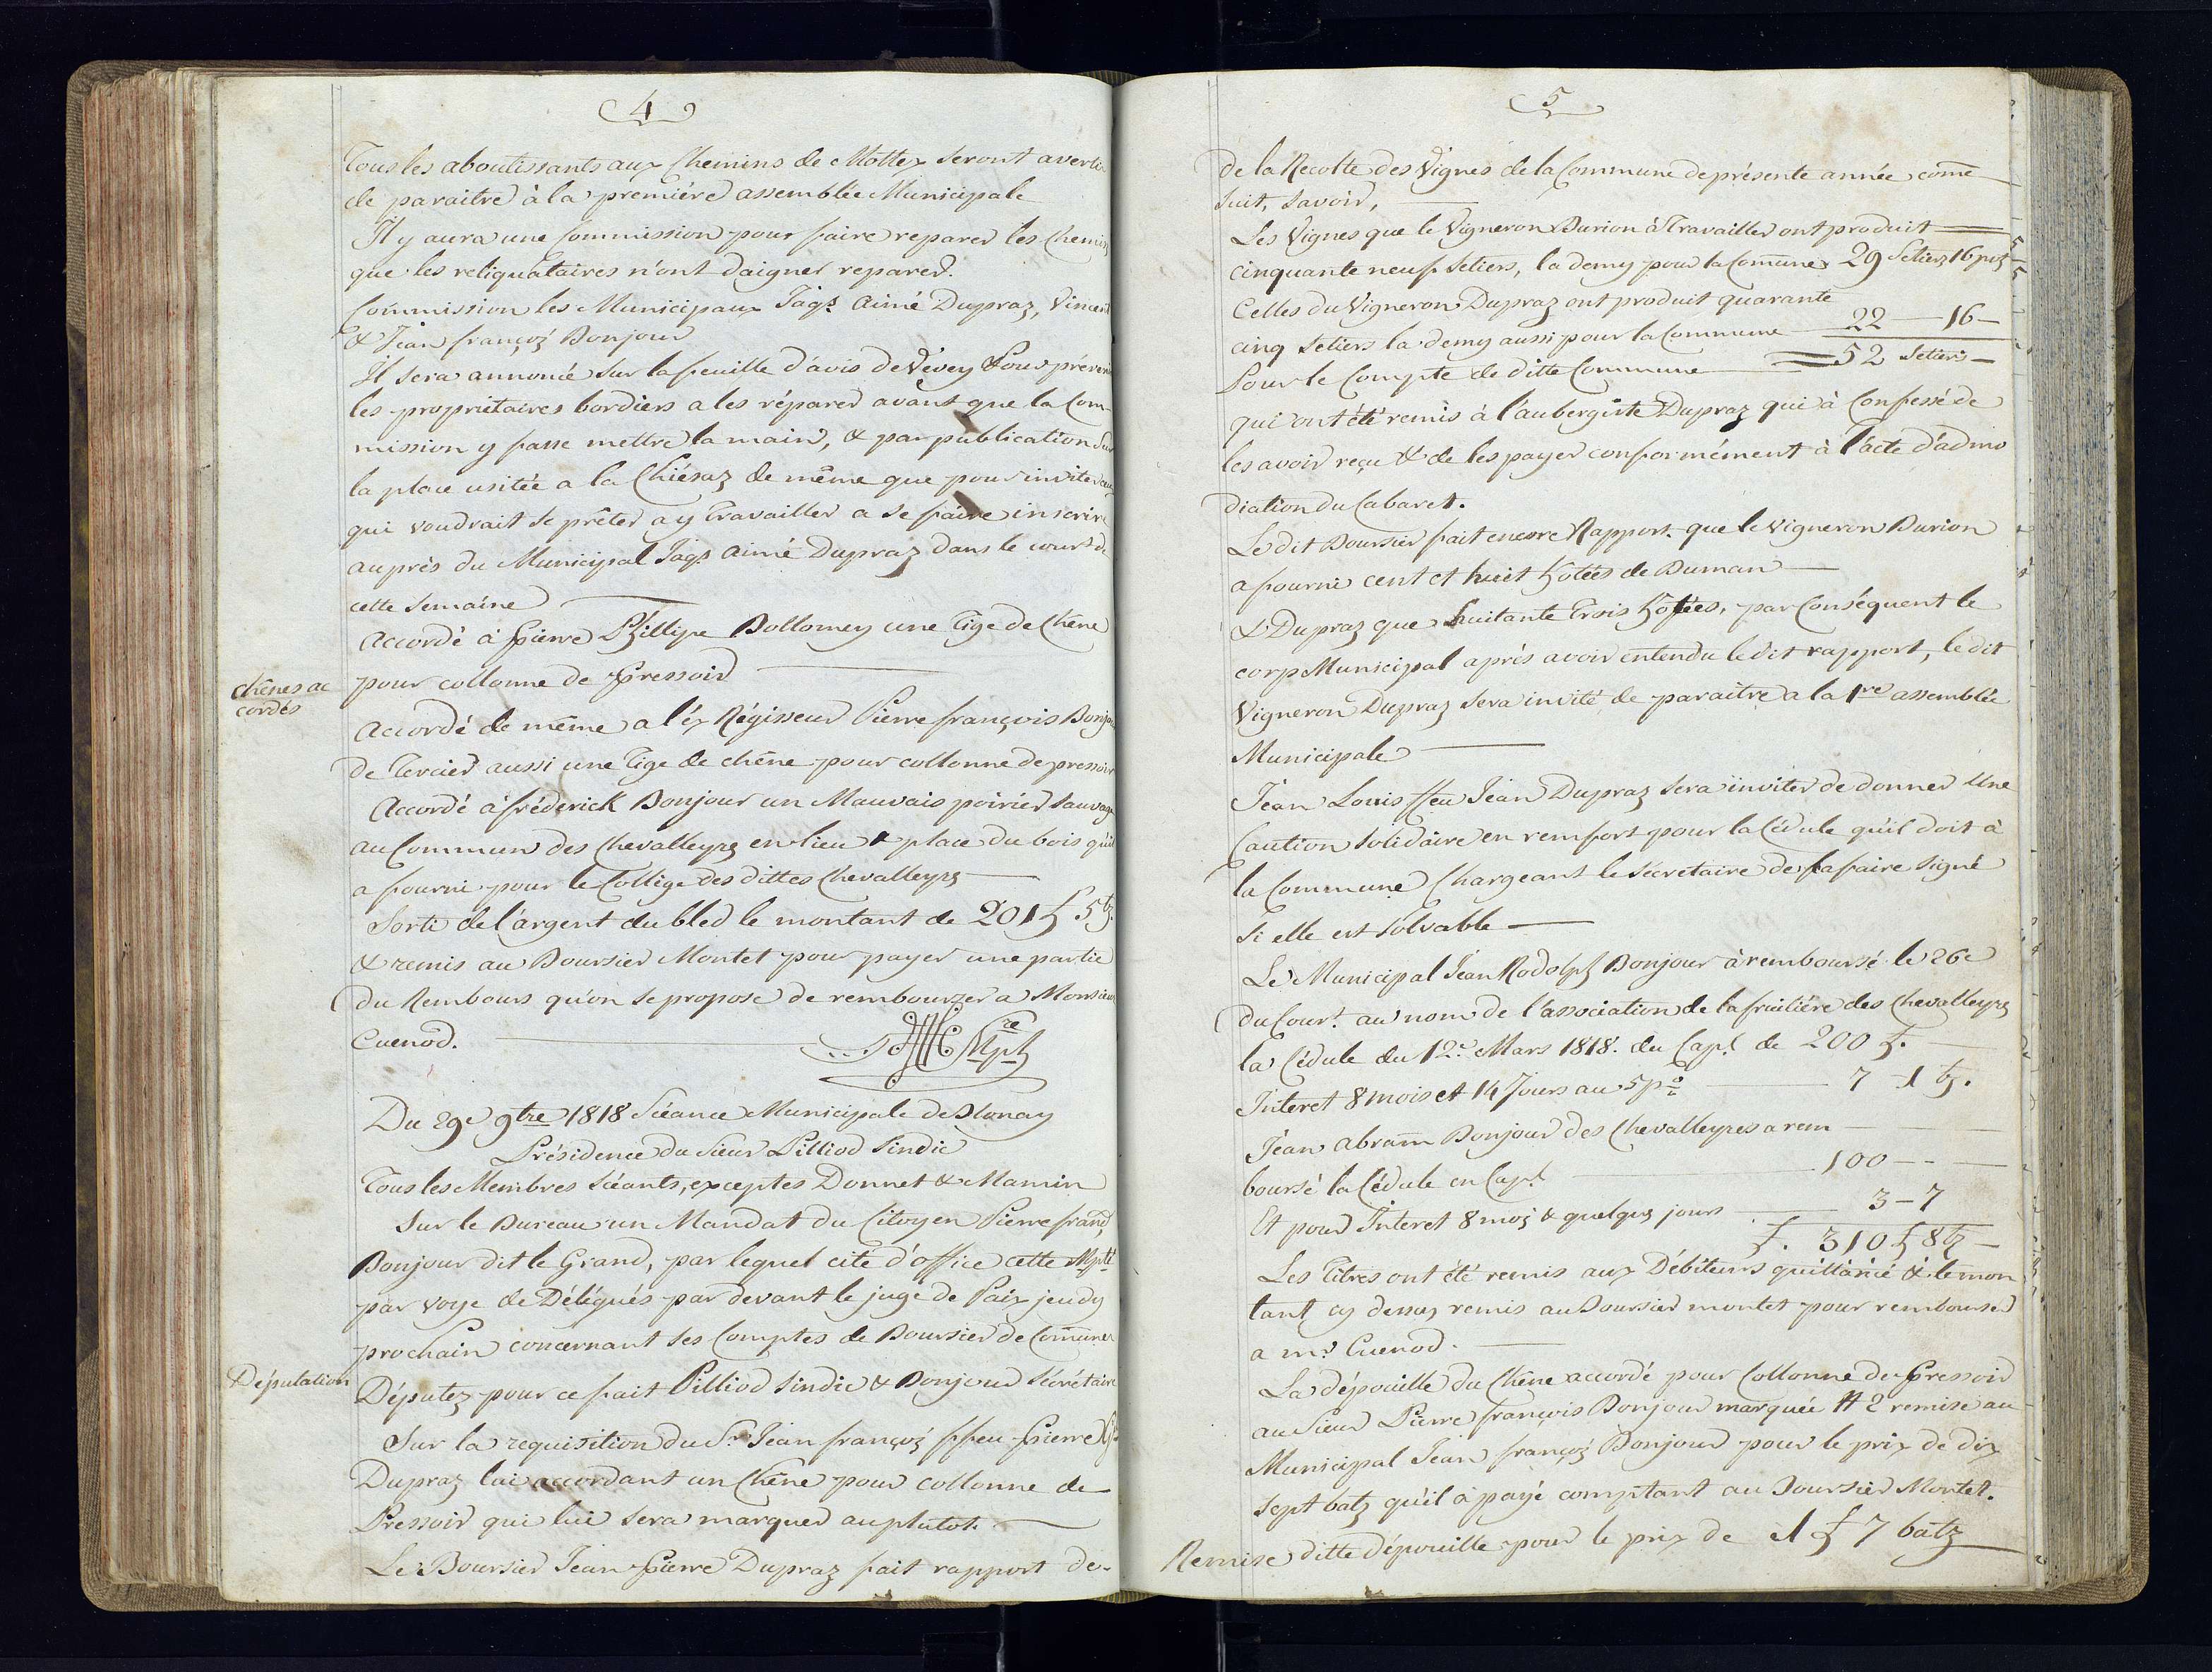 4
Tous les aboutissants aux Chemins de Mottex seront averti
de paraitre à la premiére assemblée Municipale
Il y aura une Commission pour faire reparer les Chemins
que les reliquataires n'ont daigner reparer.
Commission les Municipaux Jaqs. Aimé Dupraz, Vincent
& Jean françoz Bonjour
Il sera annoncé sur la feuille d'avis de Vevey Pour prévenir
les propriétaires bordiers a les réparer avant que la Com-
mission y fasse mettre la main, & par publication sur
la place usitée a la Chiésaz de même que pour inviter
qui voudrait se prêter a y travailler a se faire inscrire
auprès du Municipal Jaqs. Aimé Dupraz dans le court de
cette semaine
Accordé à Pierre Phillipe Dollomey une tige de Chêne
pour collonne de Pressoir
chênes ac
cordés
Accordé de même a l'éx Régisseur Pierre françois Bonjour
de Tercier aussi une tige de chêne pour collonne de pressoir
Accordé à fréderick Bonjour un Mauvais poirier sauvage
au Commun des Chevalleyrs en lieu & place du bois qu'il
a fourni pour le Collége des dittes Chevalleyrs
Sorti de l'argent du bled le montant de 201 f 5 bz.
& remis au Boursier Montet pour payer une partie
du Rembours qu'on se propose de rembourzer a Monsieur
Cuenod.
Du 29e 9bre 1818 Séance Municipale de Blonay
Présidence du Sieur Pilliod Sindic
Tous les Membres séants, exceptes Donnet & Mamin
Sur le Bureau un Mandat du Citoyen Pierre franç
Bonjour dit le Grand, par lequel cité d'office cette Mpté
par voye de Délégués par devant le juge de Paix jeudy
prochain concernant ses Comptes de Boursier de Commune
Députation
Députez pour ce fait Pilliod sindic & Bonjour sécrétaire
Sur la requisition du Sr. Jean françoz ffeu Pierre
Dupraz lui accordant un Chêne pour collonne de
Pressoir qui lui sera marquer au plutot.
Le Boursier Jean Pierre Dupraz fait rapport de-
5
de la Recolte des Vignes de la Commune de présente année come
suit, savoir,
Les Vignes que le Vigneron Durion à travailler ont produit
cinquante neuf setiers, la demy pour la Comune 29 Setiers 16 pts
Celles du Vigneron Dupraz ont produit quarante
cinq setiers la demy aussi pour la Commune 22 16
Pour le Compte de ditte Commune 52 Setiers
qui ont été remis à l'aubergiste Dupraz qui à Confessé de
les avoir reçu & de les payer conformément à l'acte d'admo
diation du Cabaret.
Le dit Boursier fait encore Rapport que le vigneron Durion
a fourni cent et huit hotées de Duman
& Dupraz que huitante trois hôtées, par Conséquent le
corp Municipal aprés avoir entendu le dit rapport, le dit
Vigneron Dupraz sera invité de paraitre a la 1re assemblée
Municipale
Jean Louis ffeu Jean Dupraz sera inviter de donner Une
Caution solidaire en renfort pour la Cédule qu'il doit à
la Commune Chargeant le sécretaire de la faire signé
si elle est solvable
Le Municipal Jean Rodolph Bonjour à remboursé le 26e
du Court. au nom de l'association de la fruitiére des Chevalleyrs
la Cédule du 12e Mars 1818. du Capl de 200 f.
Interet 8 mois et 14 Jours au 5 p% 7 1 bz.
Jean abram Bonjour des Chevalleyres a rem
boursé la Cédule en Capl 100
Et pour Interet 8 moiz & quelqus jours 3 - 7
f. 310 f 8 bz
Les titres ont été remis aux Débiteurs quittancé & le mon
tant cy dessus remis au Boursier montet pour rembourser
a mr Cuenod.
La dépouille du Chêne accordé pour Collonne de Pressoir
au Sieur Pierre françois Bonjour marquée # 2 remise au
Municipal Jean françoz Bonjour pour le prix de dix
sept batz qu'il à payé comptant au Boursier Montet.
Remise ditte dépouille pour le prix de 1 f 7 batz